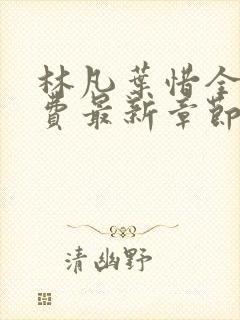 林凡葉惜全
費最新章節
清幽野